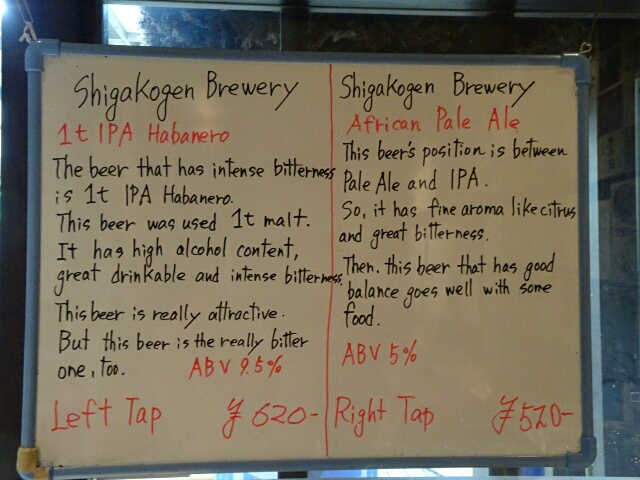 Shigakogen Brewery
1t IPA Habanero
The beer that has intense bitterness
is 1t IPA Habanero.
This beer was used 1t malt.
It has high alcohol content,
great drinkable and intense bitterness.
This beer is really attractive.
But this beer is the really bitter
one, too.
ABV 9.5%
Left Tap ¥620-
Shigakogen Brewery
African Pale Ale
This beer's position is between
Pale Ale and IPA.
So, it has fine aroma like citrus
and great bitterness.
Then, this beer that has good
balance goes well with some
food.
ABV 5%
Right Tap ¥520-